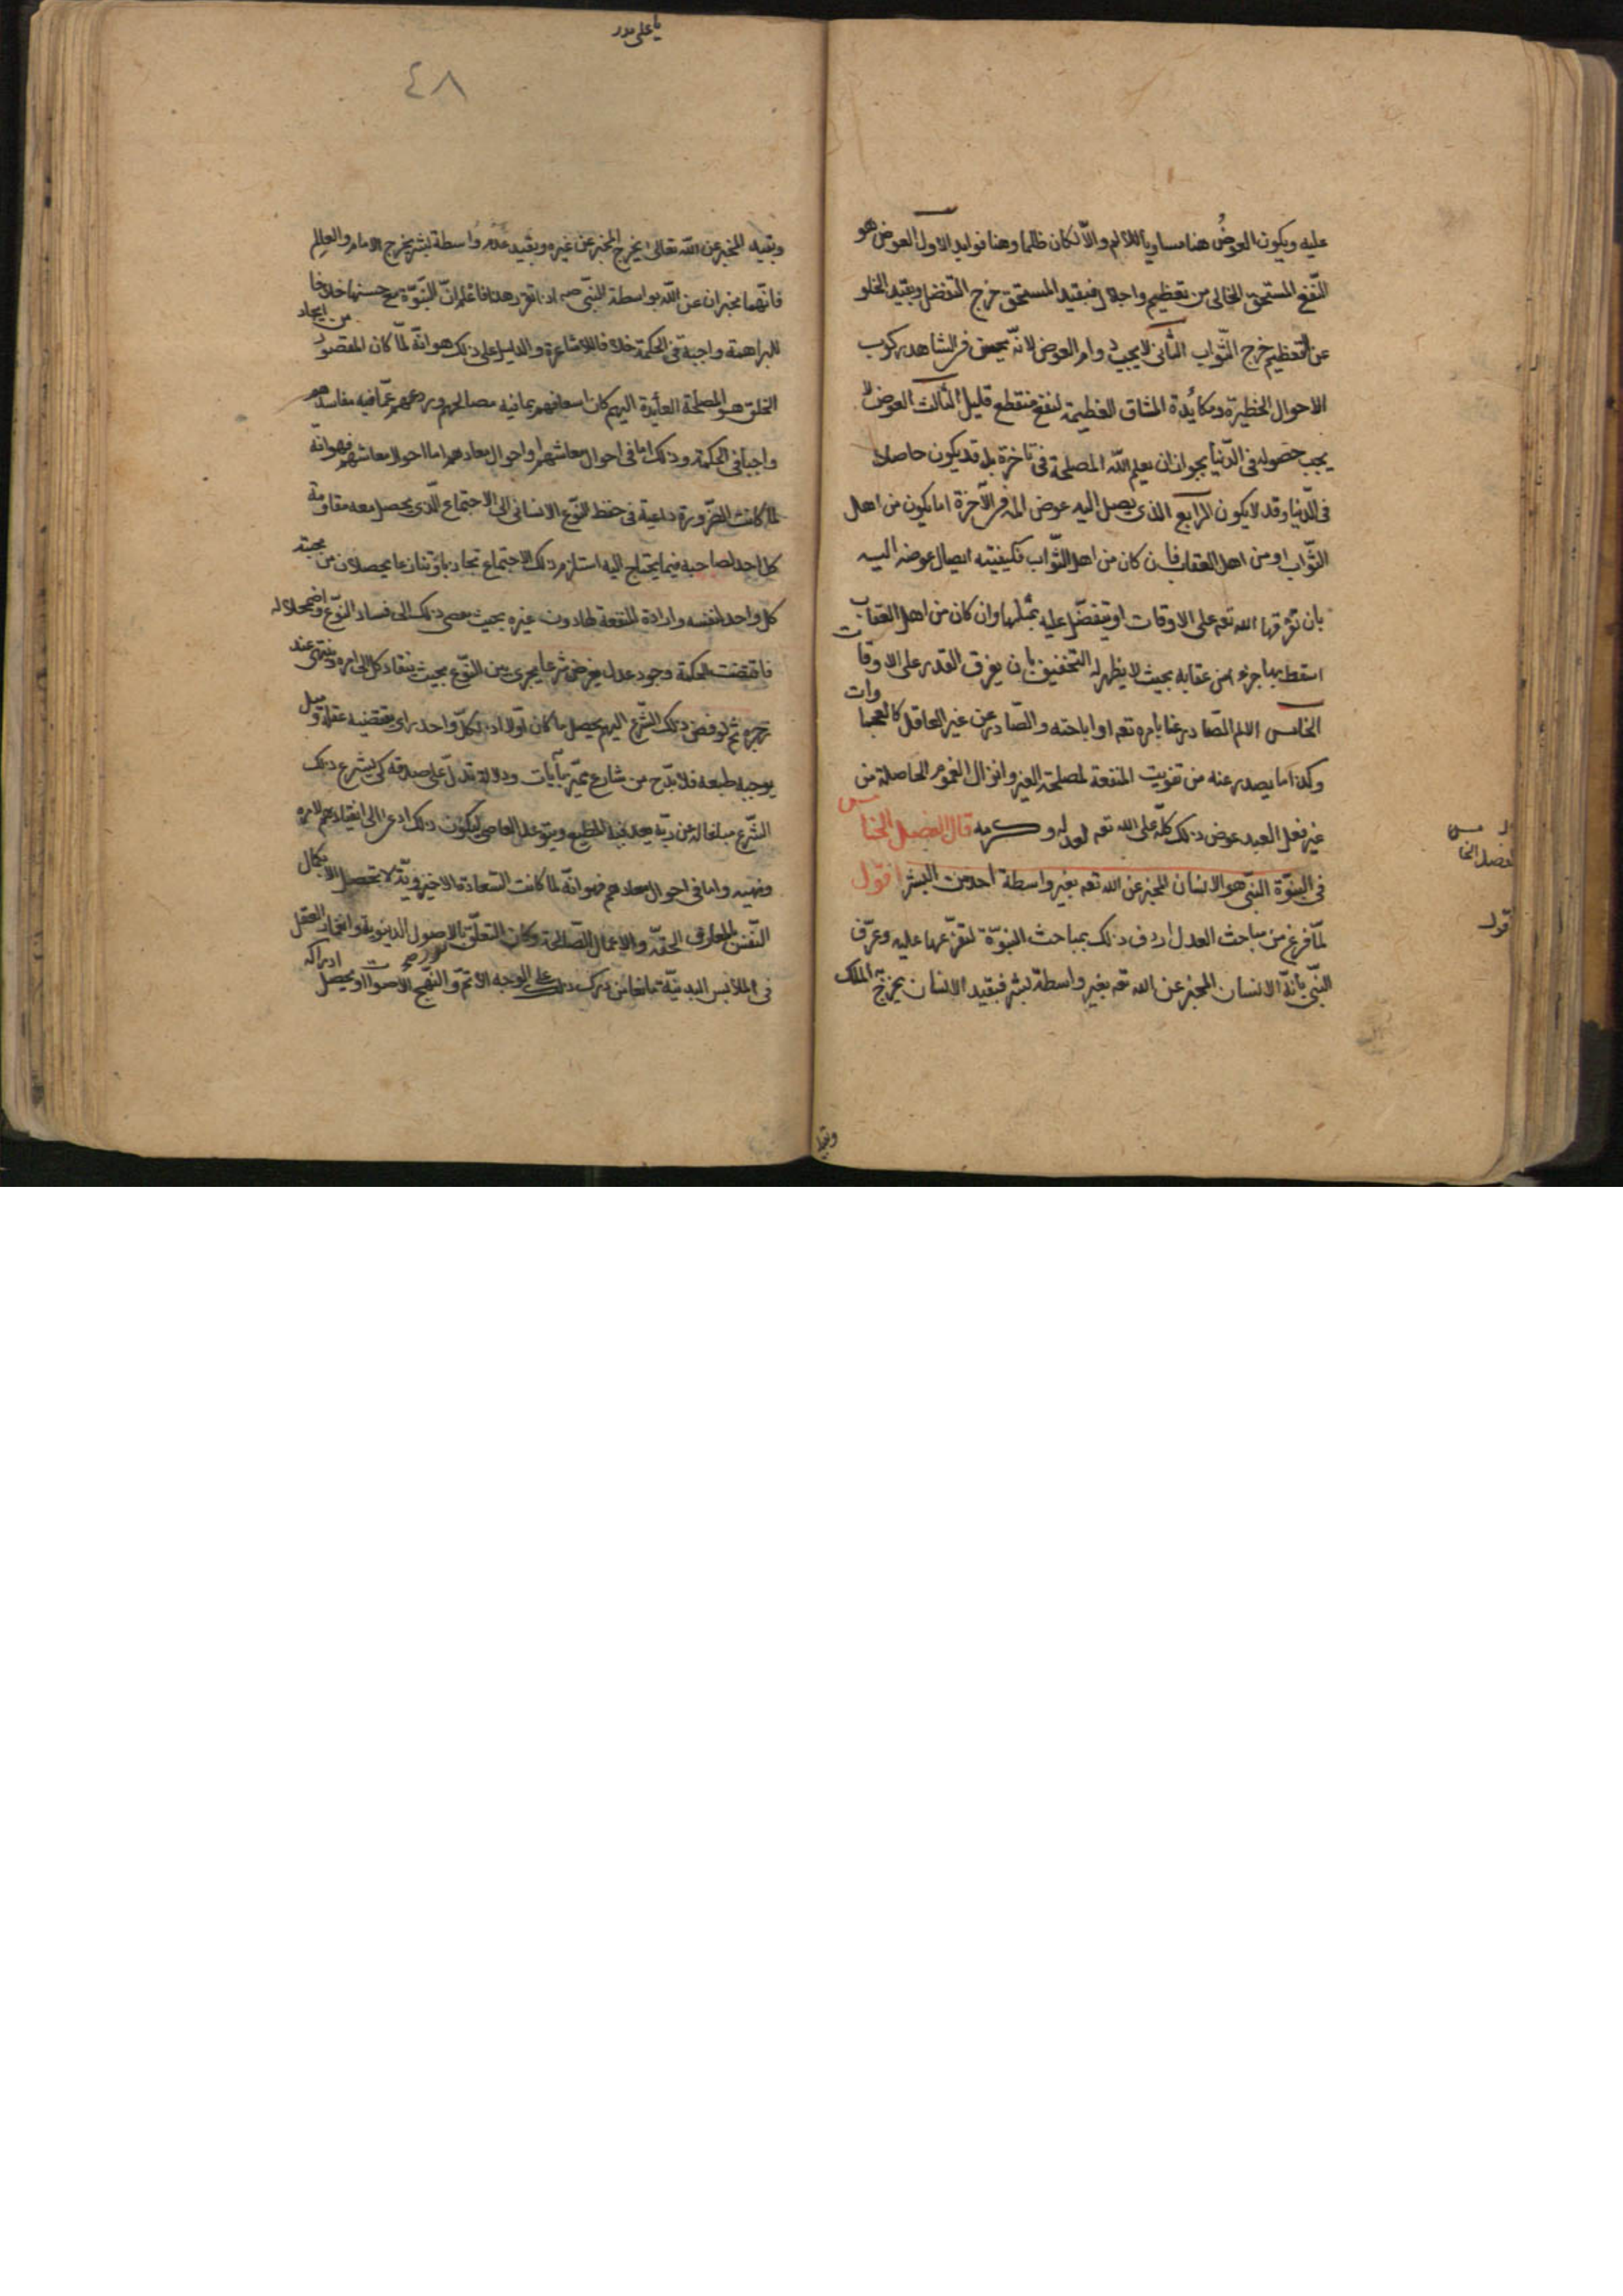 عليه ويكون العوض هنا مساويا للالم والا لكان ظلما وهنا فوايد الاول العوض هو
النفع المستحق الخالى من تعظيم واجلال فبقيد المستحق خرج التفضل وبقيد الخلو
عن التعظيم خرج الثواب الثانى لا يجب دوام العوض لانه يحسن فى الشاهد ركوب
الاحوال الخطيرة ومكابدة المشاق العظيمة لنفع منقطع قليل الثالث العوض لا
يجب حصوله فى الدنيا لجواز ان يعلم الله المصلحة فى تاخره بل قد يكون حاصلا
فى الدنيا وقد لا يكون الرابع الذى يصل اليه عوض المه فى الآخرة اما يكون من اهل
الثواب او من اهل العقاب فان كان من اهل الثواب فكيفيته ايصال عوضه اليه
بان تفرقها الله تعه على الاوقات او يتفضل عليه بمثلها وان كان من اهل العقاب
اسقط بها جزء من عقابه بحيث لا يظهر له التخفيف بان يفرق القدر على الاوقات
الخامس الالم الصادر عنا بامره تعه او اباحته والصادر عن غير العاقل كالعجماوات
وكذا ما يصدر عنه من تفويت المنفعة لمصلحة الغير وانزال الغموم الحاصلة من
غير فعل العبد عوض ذلك كله على الله تعه لعدله وكرمه قال الفصل الخامس
فى النبوة النبى هو الانسان المخبر عن الله تعه بغير واسطة احد من البشر اقول
لما فرغ من مباحث العدل اردف ذلك بمباحث النبوة لتفرعها عليه وعرف
النبى بانه الانسان المخبر عن الله تعه بغير واسطة بشر فبقيد الانسان يخرج الملك
الفصل الخامس
اقول
وبقيد
يا على مدد
٤٨
وبقيد المخبر عن الله تعالى يخرج المخبر عن غيره وبقيد عدم واسطة بشر يخرج الامام والعالم
فانهما مخبران عن الله بواسطة النبى صه اذا تقرر هذا فاعلم ان النبوة مع حسنها خلافا
للبراهمة واجبة فى الحكمة خلافا للاشاعرة والدليل على ذلك هو انه لما كان المقصود من ايجاد
الخلق هو المصلحة العايدة اليهم كان اسعافهم بما فيه مصالحهم وردعهم عما فيه مفاسدهم
واجبا فى الحكمة وذلك اما فى احوال معاشهم او احوال معادهم اما احوال معاشهم فهو انه
لما كانت الضرورة داعية فى حفظ النوع الانسانى الى الاجتماع الذى يحصل معه مقاومة
كل احد لصاحبه فيما يحتاج اليه استلزم ذلك الاجتماع تجاذبا وتنازعا يحصلان من محبته
كل واحد لنفسه وارادة المنفعة لها دون غيره بحيث يفضى ذلك الى فساد النوع واضمحلاله
فاقتضت الحكمة وجود عدل يفرض شرعا يجرى بين النوع بحيث ينقاد كل الى امره وينتهى عند
زجره ثم لو فوض ذلك الشرع اليهم يحصل ما كان اولا اذ لكل واحد راى يقتضيه عقله وميل
يوجبه طبعه فلا بد ح من شارع متميز بآيات ودلالة تدل على صدقه كى يشرع ذلك
الشرع مبلغا له عن ربه يعد فيه المطيع ويتوعد العاصى ليكون ذلك ادعى الى انقيادهم لامره
ونهيه واما فى احوال معادهم فهو انه لما كانت السعادة الاخروية لا تحصل الا بكمال
النفس بالمعارف الحقة والاعمال الصالحة وكان التعلق بالامور الدنيوية وانغمار العقل
فى الملابس البدنية مانعا من درك ذلك على الوجه الاتم والنهج الاصوب او يحصل ادراكه